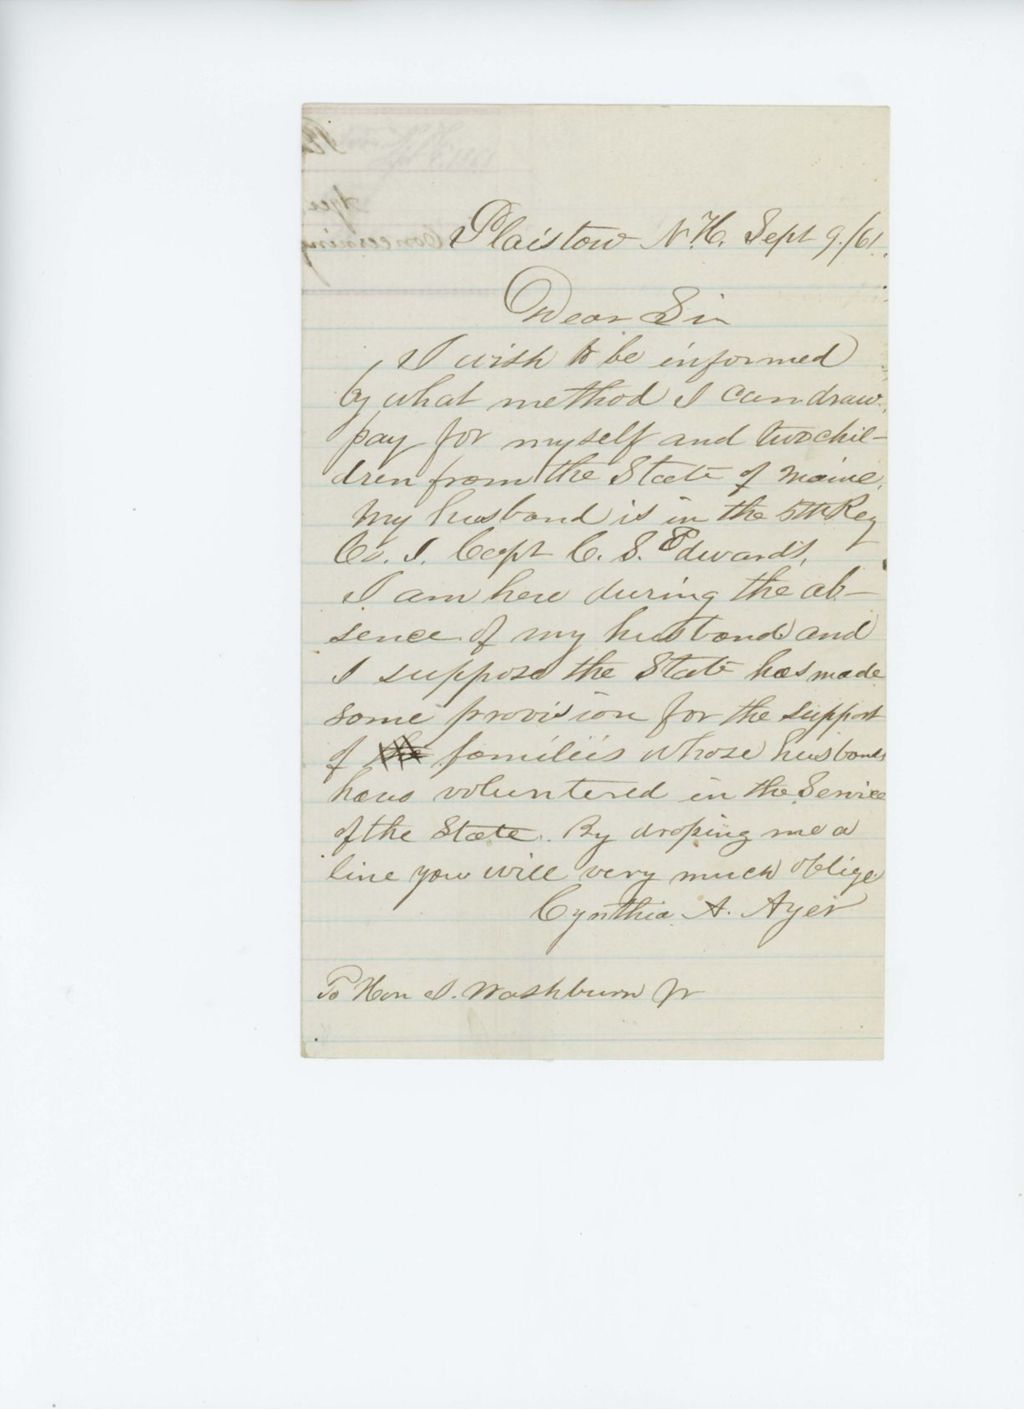 Plaistow N.H. Sept 9./61.
Dear Sir
I wish to be informed
by what method I can draw
pay for myself and two chil-
dren from the State of Maine.
My husband is in the 5th Reg
Co. I. Capt C. S. Edwards,
I am here during the ab-
sence of my husband and
I suppose the State has made
some provision for the support
of the families whose husbands
have voluntered in the Service
of the State. By droping me a
line you will very much oblige
Cynthia A. Ayer
To Hon I. Washburn Jr